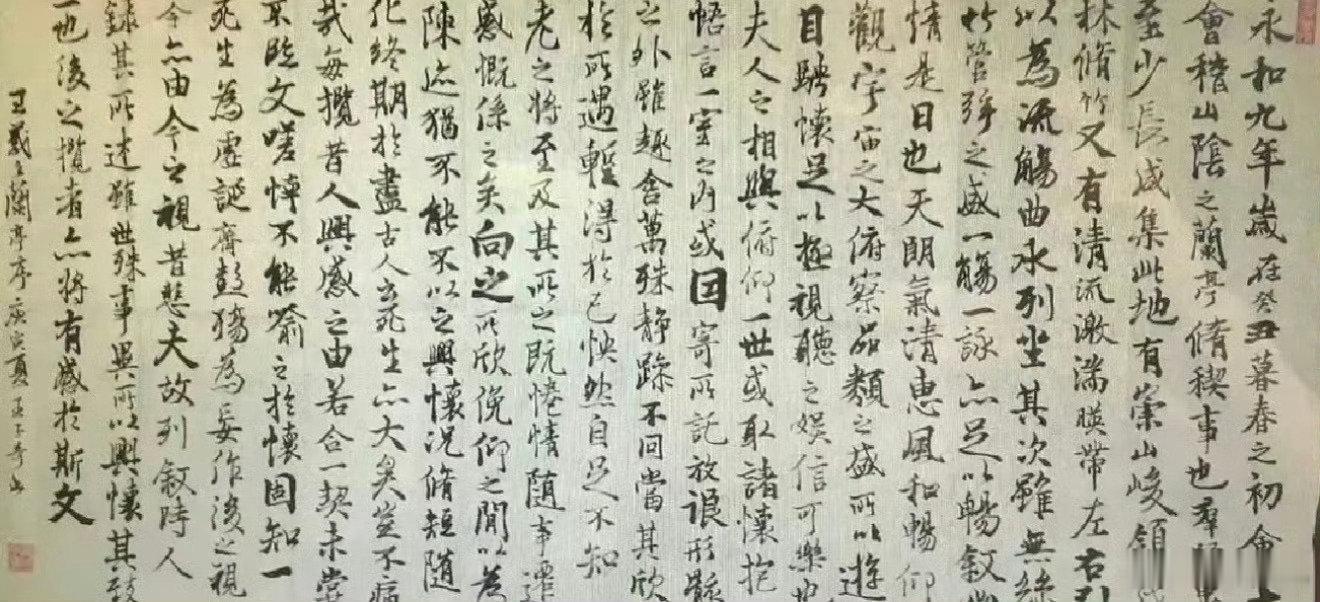 永和九年歲在癸丑暮春之初會
會稽山陰之蘭亭脩稧事也羣
至少長咸集此地有崇山峻領
林脩竹又有清流激湍暎帶左右引
以為流觴曲水列坐其次雖無絲
竹管弦之盛一觴一詠亦足以暢敘幽
情是日也天朗氣清惠風和暢仰
觀宇宙之大俯察品類之盛所以遊
目騁懷足以極視聽之娛信可樂也
夫人之相與俯仰一世或取諸懷抱
悟言一室之內或因寄所託放浪形骸
之外雖趣舍萬殊静躁不同當其欣
於所遇蹔得於己怏然自足不知
老之將至及其所之既惓情随事遷
感慨係之矣向之所欣俛仰之閒以為
陳迹猶不能不以之興懷況脩短隨
化終期於盡古人云死生亦大矣豈不痛
哉每攬昔人興感之由若合一契未嘗
不臨文嗟悼不能喻之於懷固知一
死生為虛誕齊彭殤為妄作後之視
今亦由今之視昔悲夫故列敘時人
錄其所述雖世殊事異所以興懷其致
一也後之攬者亦將有感於斯文
王羲之蘭亭序庚寅夏